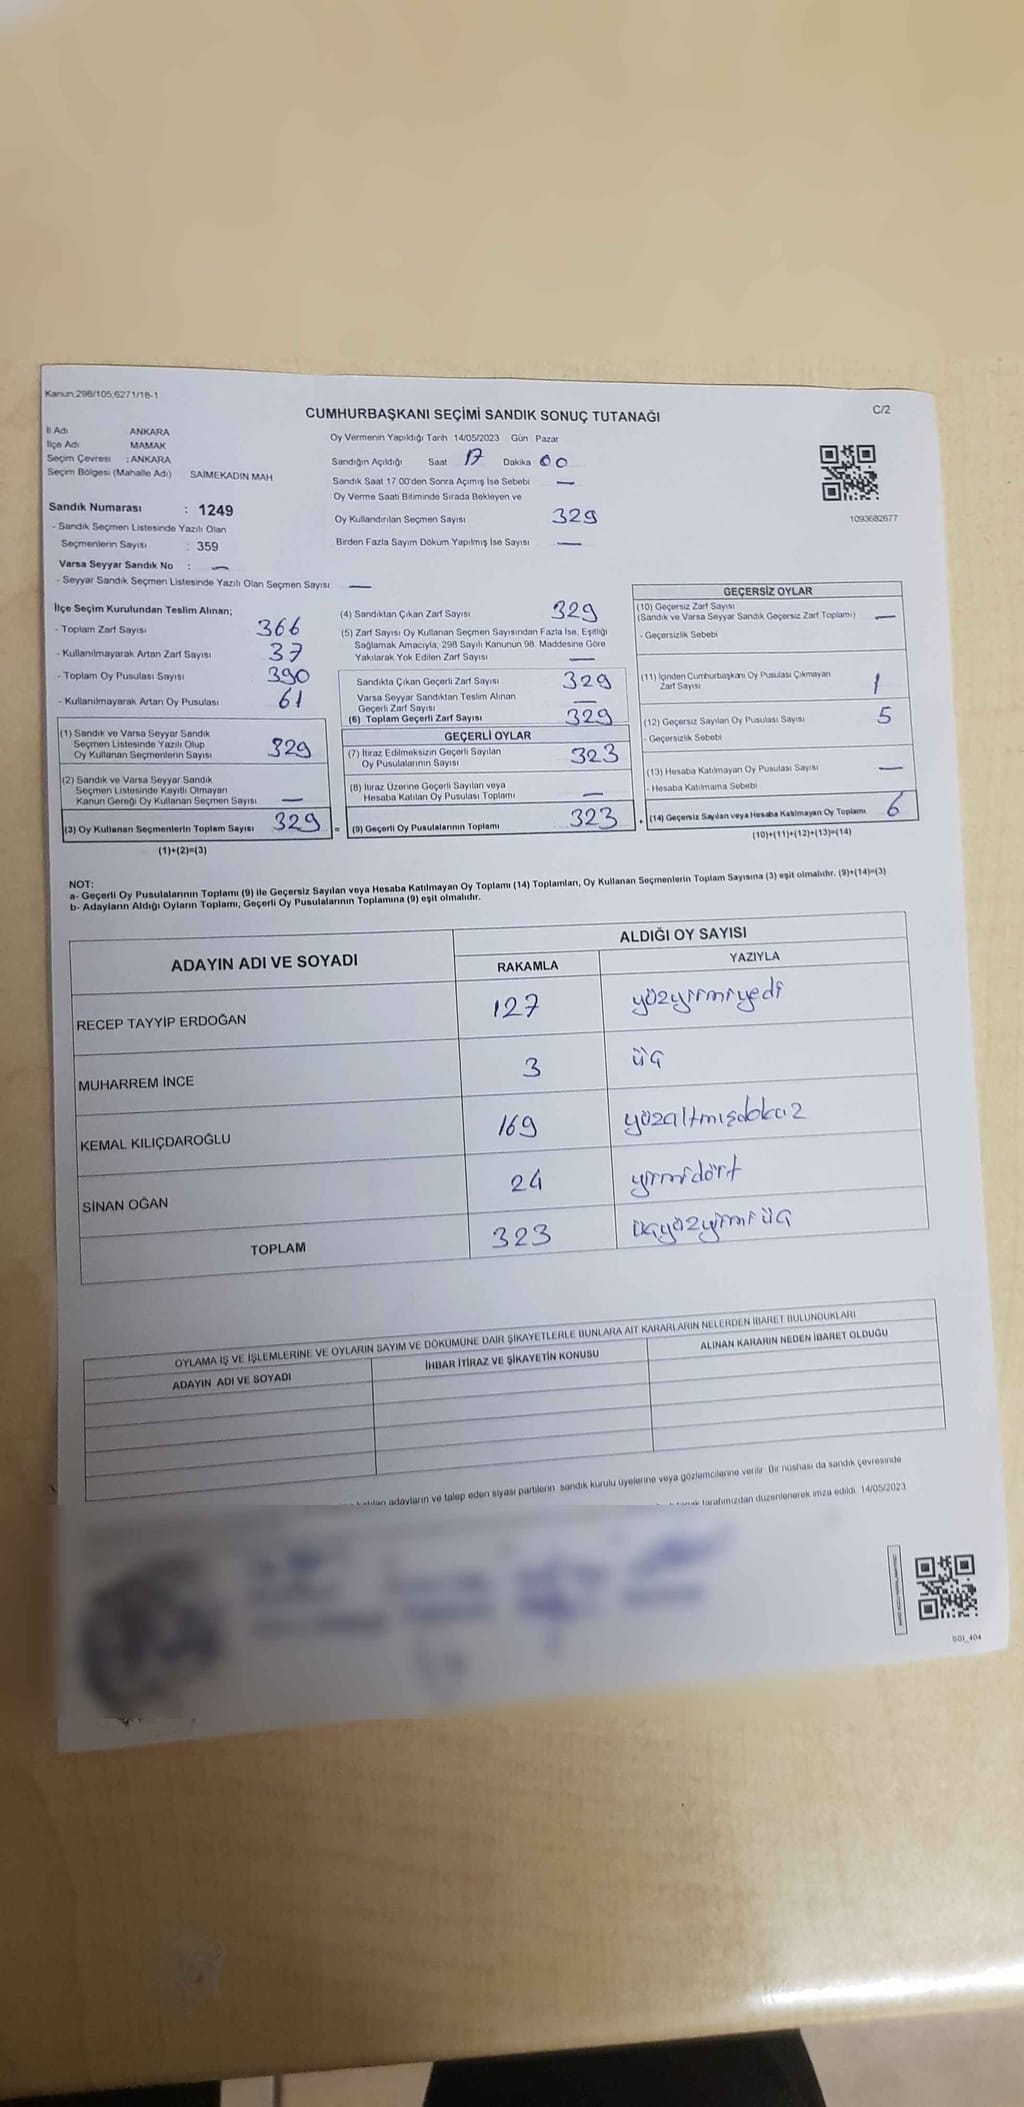 Kanun.298/105,6271/18-1
CUMHURBAŞKANI SEÇİMİ SANDIK SONUÇ TUTANAĞI
C/2
İl Adı ANKARA
İlçe Adı MAMAK
Seçim Çevresi : ANKARA
Seçim Bölgesi (Mahalle Adı) SAİMEKADIN MAH
Oy Vermenin Yapıldığı Tarih 14/05/2023 Gün Pazar
Sandığın Açıldığı Saat 17 Dakika 00
Sandık Saat 17:00'den Sonra Açımış İse Sebebi —
Oy Verme Saati Bitiminde Sırada Bekleyen ve
Oy Kullandırılan Seçmen Sayısı 329
Birden Fazla Sayım Döküm Yapılmış İse Sayısı —
1093682677
Sandık Numarası : 1249
- Sandık Seçmen Listesinde Yazılı Olan
Seçmenlerin Sayısı : 359
Varsa Seyyar Sandık No : —
- Seyyar Sandık Seçmen Listesinde Yazılı Olan Seçmen Sayısı: —
İlçe Seçim Kurulundan Teslim Alınan;
- Toplam Zarf Sayısı 366
- Kullanılmayarak Artan Zarf Sayısı 37
- Toplam Oy Pusulası Sayısı 390
- Kullanılmayarak Artan Oy Pusulası 61
(1) Sandık ve Varsa Seyyar Sandık
Seçmen Listesinde Yazılı Olup
Oy Kullanan Seçmenlerin Sayısı 329
(2) Sandık ve Varsa Seyyar Sandık
Seçmen Listesinde Kayıtlı Olmayan
Kanun Gereği Oy Kullanan Seçmen Sayısı —
(3) Oy Kullanan Seçmenlerin Toplam Sayısı 329 =
(1)+(2)=(3)
(4) Sandıktan Çıkan Zarf Sayısı 329
(5) Zarf Sayısı Oy Kullanan Seçmen Sayısından Fazla İse, Eşitliği
Sağlamak Amacıyla, 298 Sayılı Kanunun 98. Maddesine Göre
Yakılarak Yok Edilen Zarf Sayısı —
Sandıkta Çıkan Geçerli Zarf Sayısı 329
Varsa Seyyar Sandıktan Teslim Alınan
Geçerli Zarf Sayısı —
(6) Toplam Geçerli Zarf Sayısı 329
GEÇERLİ OYLAR
(7) İtiraz Edilmeksizin Geçerli Sayılan
Oy Pusulalarının Sayısı 323
(8) İtiraz Üzerine Geçerli Sayılan veya
Hesaba Katılan Oy Pusulası Toplamı —
(9) Geçerli Oy Pusulalarının Toplamı 323
GEÇERSİZ OYLAR
(10) Geçersiz Zarf Sayısı
(Sandık ve Varsa Seyyar Sandık Geçersiz Zarf Toplamı) —
- Geçersizlik Sebebi
(11) İçinden Cumhurbaşkanı Oy Pusulası Çıkmayan
Zarf Sayısı 1
(12) Geçersiz Sayılan Oy Pusulası Sayısı 5
- Geçersizlik Sebebi
(13) Hesaba Katılmayan Oy Pusulası Sayısı —
- Hesaba Katılmama Sebebi
+ (14) Geçersiz Sayılan veya Hesaba Katılmayan Oy Toplamı 6
(10)+(11)+(12)+(13)=(14)
NOT:
a- Geçerli Oy Pusulalarının Toplamı (9) ile Geçersiz Sayılan veya Hesaba Katılmayan Oy Toplamı (14) Toplamları, Oy Kullanan Seçmenlerin Toplam Sayısına (3) eşit olmalıdır. (9)+(14)=(3)
b- Adayların Aldığı Oyların Toplamı, Geçerli Oy Pusulalarının Toplamına (9) eşit olmalıdır.
ADAYIN ADI VE SOYADI
ALDIĞI OY SAYISI
RAKAMLA YAZIYLA
RECEP TAYYİP ERDOĞAN 127 yüzyirmiyedi
MUHARREM İNCE 3 üç
KEMAL KILIÇDAROĞLU 169 yüzaltmışdokuz
SİNAN OĞAN 24 yirmidört
TOPLAM 323 üçyüzyirmiüç
OYLAMA İŞ VE İŞLEMLERİNE VE OYLARIN SAYIM VE DÖKÜMÜNE DAİR ŞİKAYETLERLE BUNLARA AİT KARARLARIN NELERDEN İBARET BULUNDUKLARI
ADAYIN ADI VE SOYADI İHBAR İTİRAZ VE ŞİKAYETİN KONUSU ALINAN KARARIN NEDEN İBARET OLDUĞU
adayların ve talep eden siyasi partilerin sandık kurulu üyelerine veya gözlemcilerine verilir. Bir nüshası da sandık çevresinde
tarafımızdan düzenlenerek imza edildi. 14/05/2023
SSI_404